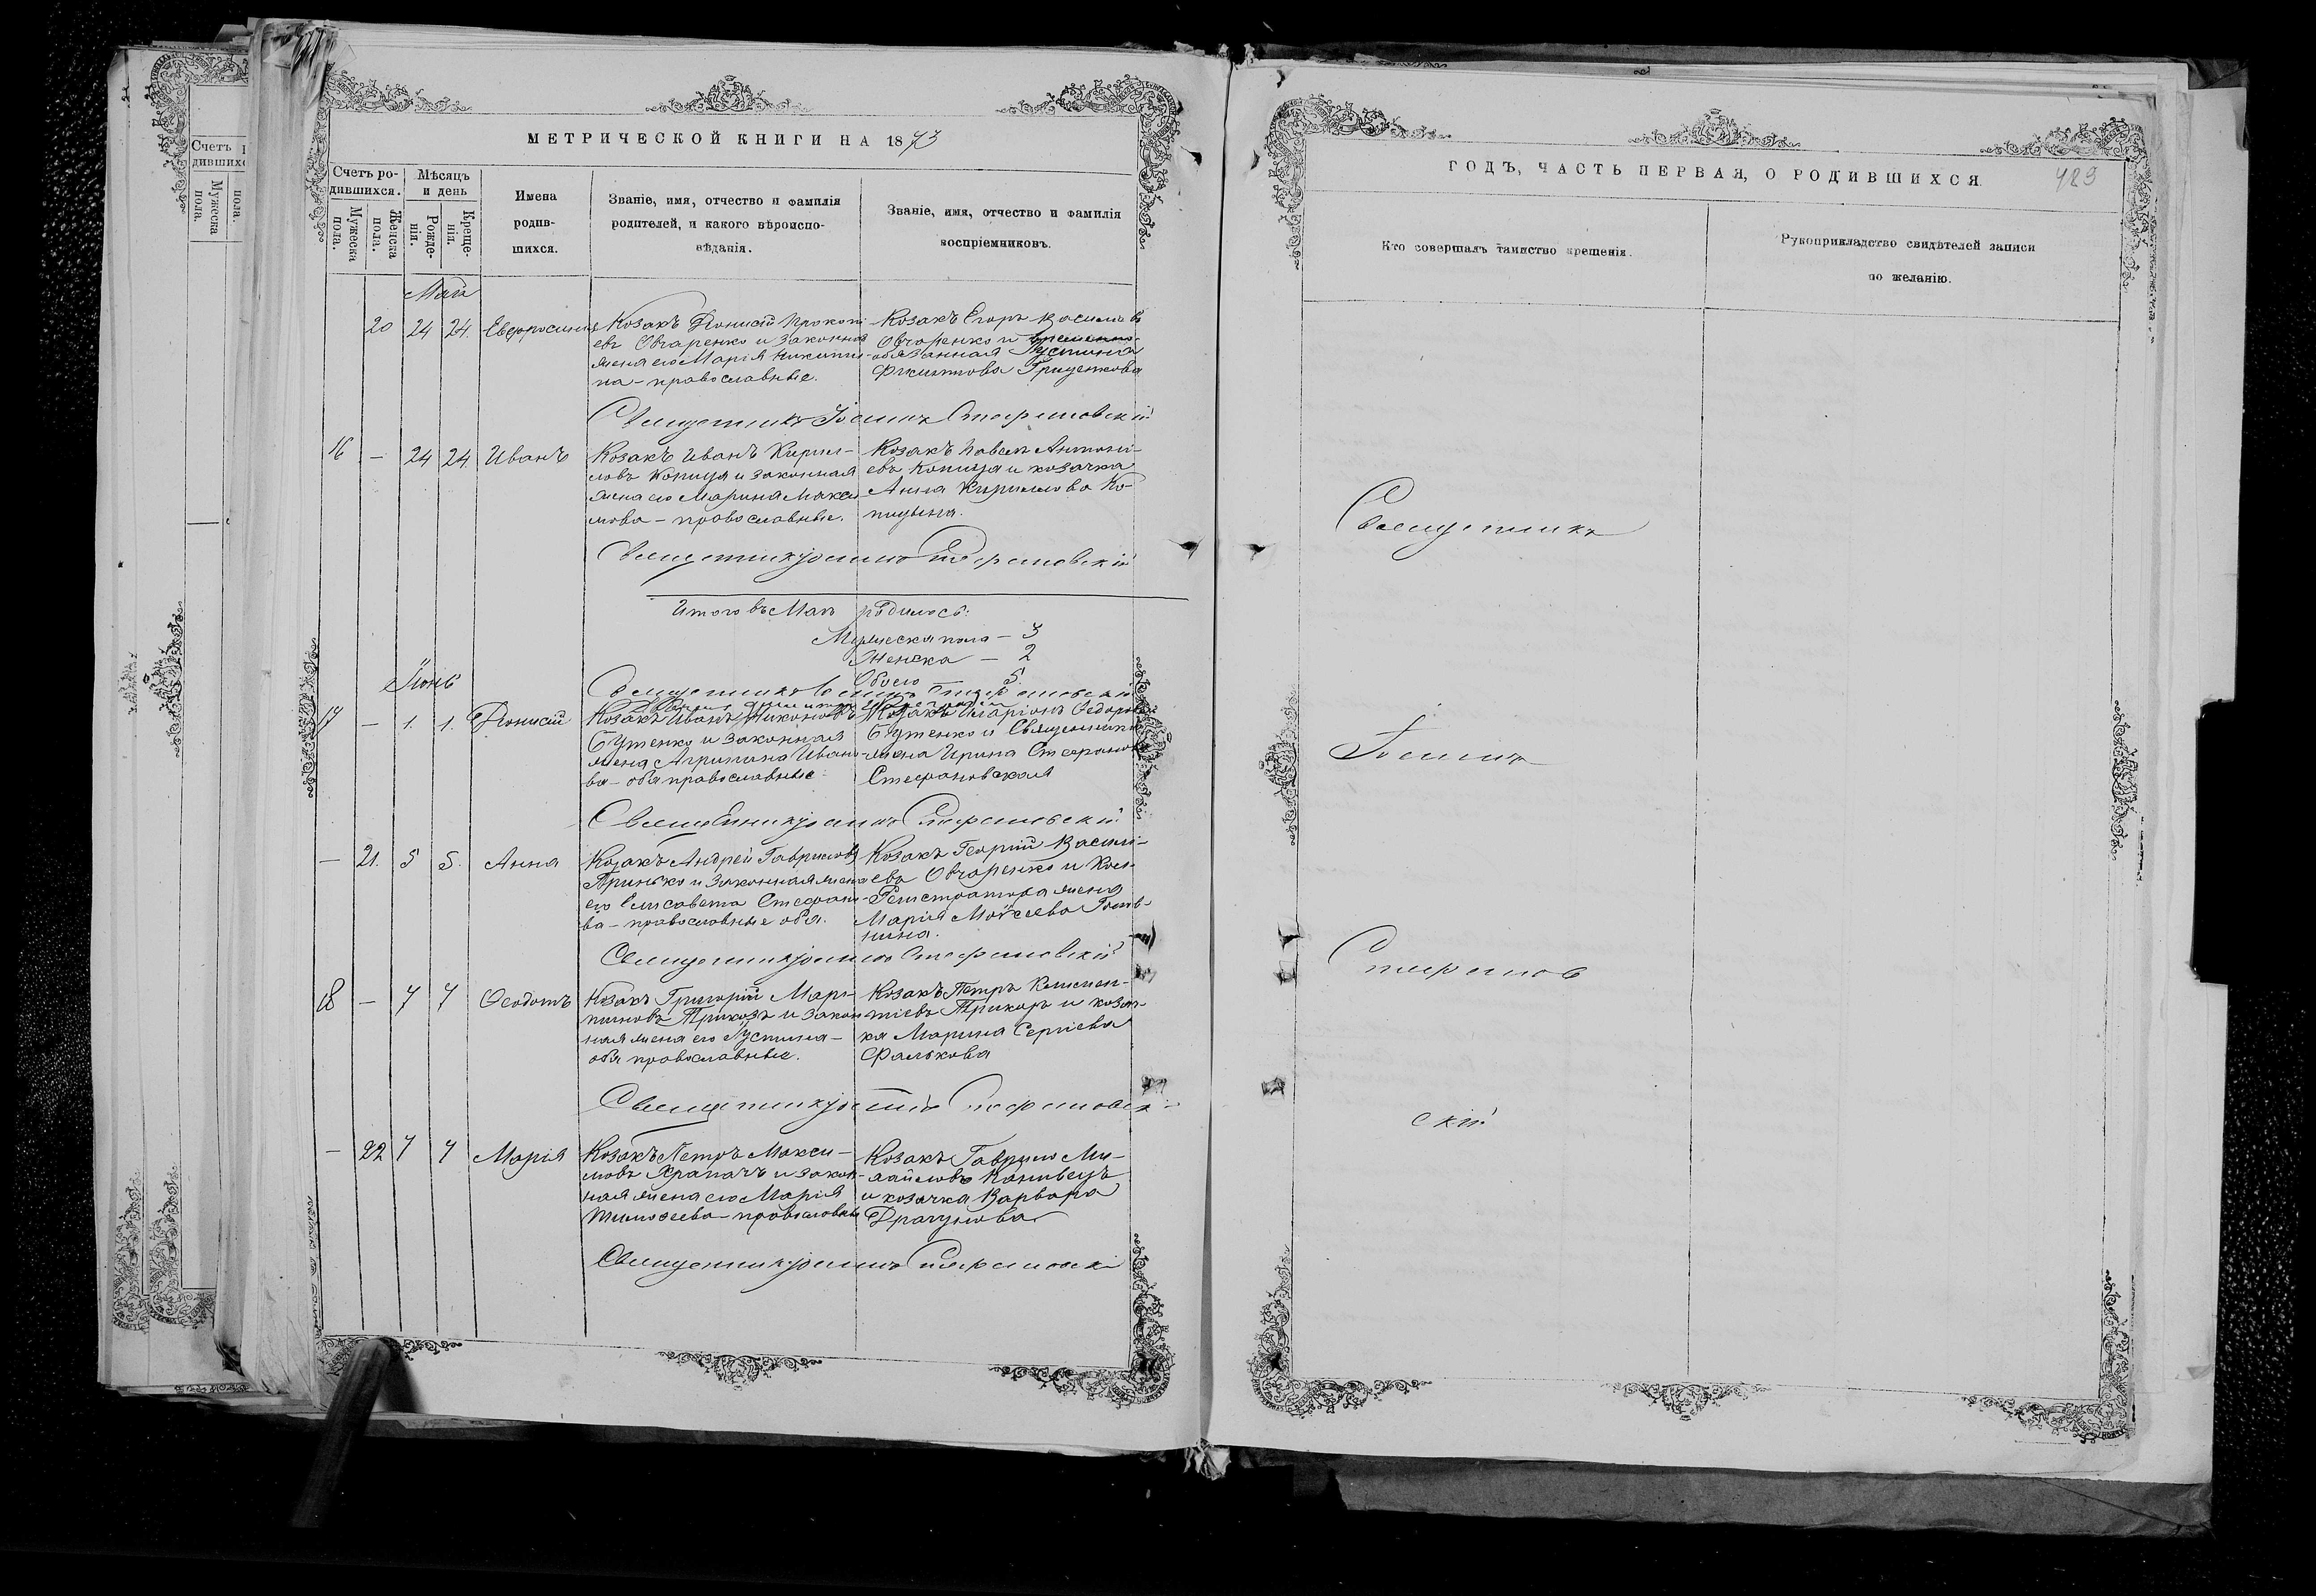 Счетъ
дивших
Мужеска пола.
пола.
МЕТРИЧЕСКОЙ КНИГИ НА 1873
Счетъ ро-
дившихся.
Мужеска пола.
Женска пола.
Мѣсяцъ
и день
Рожде-
нія.
Креще-
нія.
Имена
родив-
шихся.
Званіе, имя, отчество и фамилія
родителей, и какого вѣроиспо-
вѣданія.
Званіе, имя, отчество и фамилія
воспріемниковъ.
Май
20 24 24. Евфросинія
Козакъ Діонисій Прокопі
евъ Овчаренко и законная
жена его Марія Никити-
на - православные.
Козакъ Егоръ Василіевъ
Овчаренко и временно-
обязанная Іустина
Гриценкова
Священникъ Іоаннъ Стефановскій
16 - 24 24 Иванъ
Козакъ Иванъ Кирил-
ловъ Копица и законная
жена его Марина Макси-
мова - православные.
Козакъ Павелъ Антоні-
евъ Копица и козачка
Анна Кириллова Ко-
пицына.
Священникъ Іоаннъ Стефановскій
Итого въ Маѣ родилось:
Мужеска пола - 3
Женска - 2
Обоего 5.
Священникъ Іоаннъ Стефановскій
Іюнь
17 - 1. 1. Діонисій
Козакъ Иванъ Никоновъ
Бутенко и законная
жена Агрипина Ивано-
ва - оба православные
Козакъ Иларіонъ Федоровъ
Бутенко и Священника
жена Ирина Стефанова
Стефановская
Священникъ Іоаннъ Стефановскій
- 21. 5 5. Анна
Козакъ Андрей Гавриловъ
Гринько и законная жена
его Елисавета Стефано-
ва - православные оба.
Козакъ Георгій Василі-
евъ Овчаренко и Кол.
Регистратора жена
Марія Моѵсеева
Священникъ Іоаннъ Стефановскій
18 - 7 7 Ѳеодотъ
Козакъ Григорій Мар-
тиновъ и закон
ная жена его Іустина -
оба православные.
Козакъ Петръ Климен-
тіевъ и козач-
ка Марина Сергіева
Фалькова
Священникъ Іоаннъ Стефановскій
- 22 7 7 Марія
Козакъ Петръ Макси-
мовъ Храпачъ и закон-
ная жена его Марія
Тимофеева - православные
Козакъ Гаврило Ми-
хайловъ Канивецъ
и козачка Варвара
Драгунова
Священникъ Іоаннъ Стефановскі
ГОДЪ, ЧАСТЬ ПЕРВАЯ, О РОДИВШИХСЯ.
489
Кто совершалъ таинство крещенія.
Рукоприкладство свидѣтелей записи
по желанію.
Священникъ
Іоаннъ
Стефанов
скій